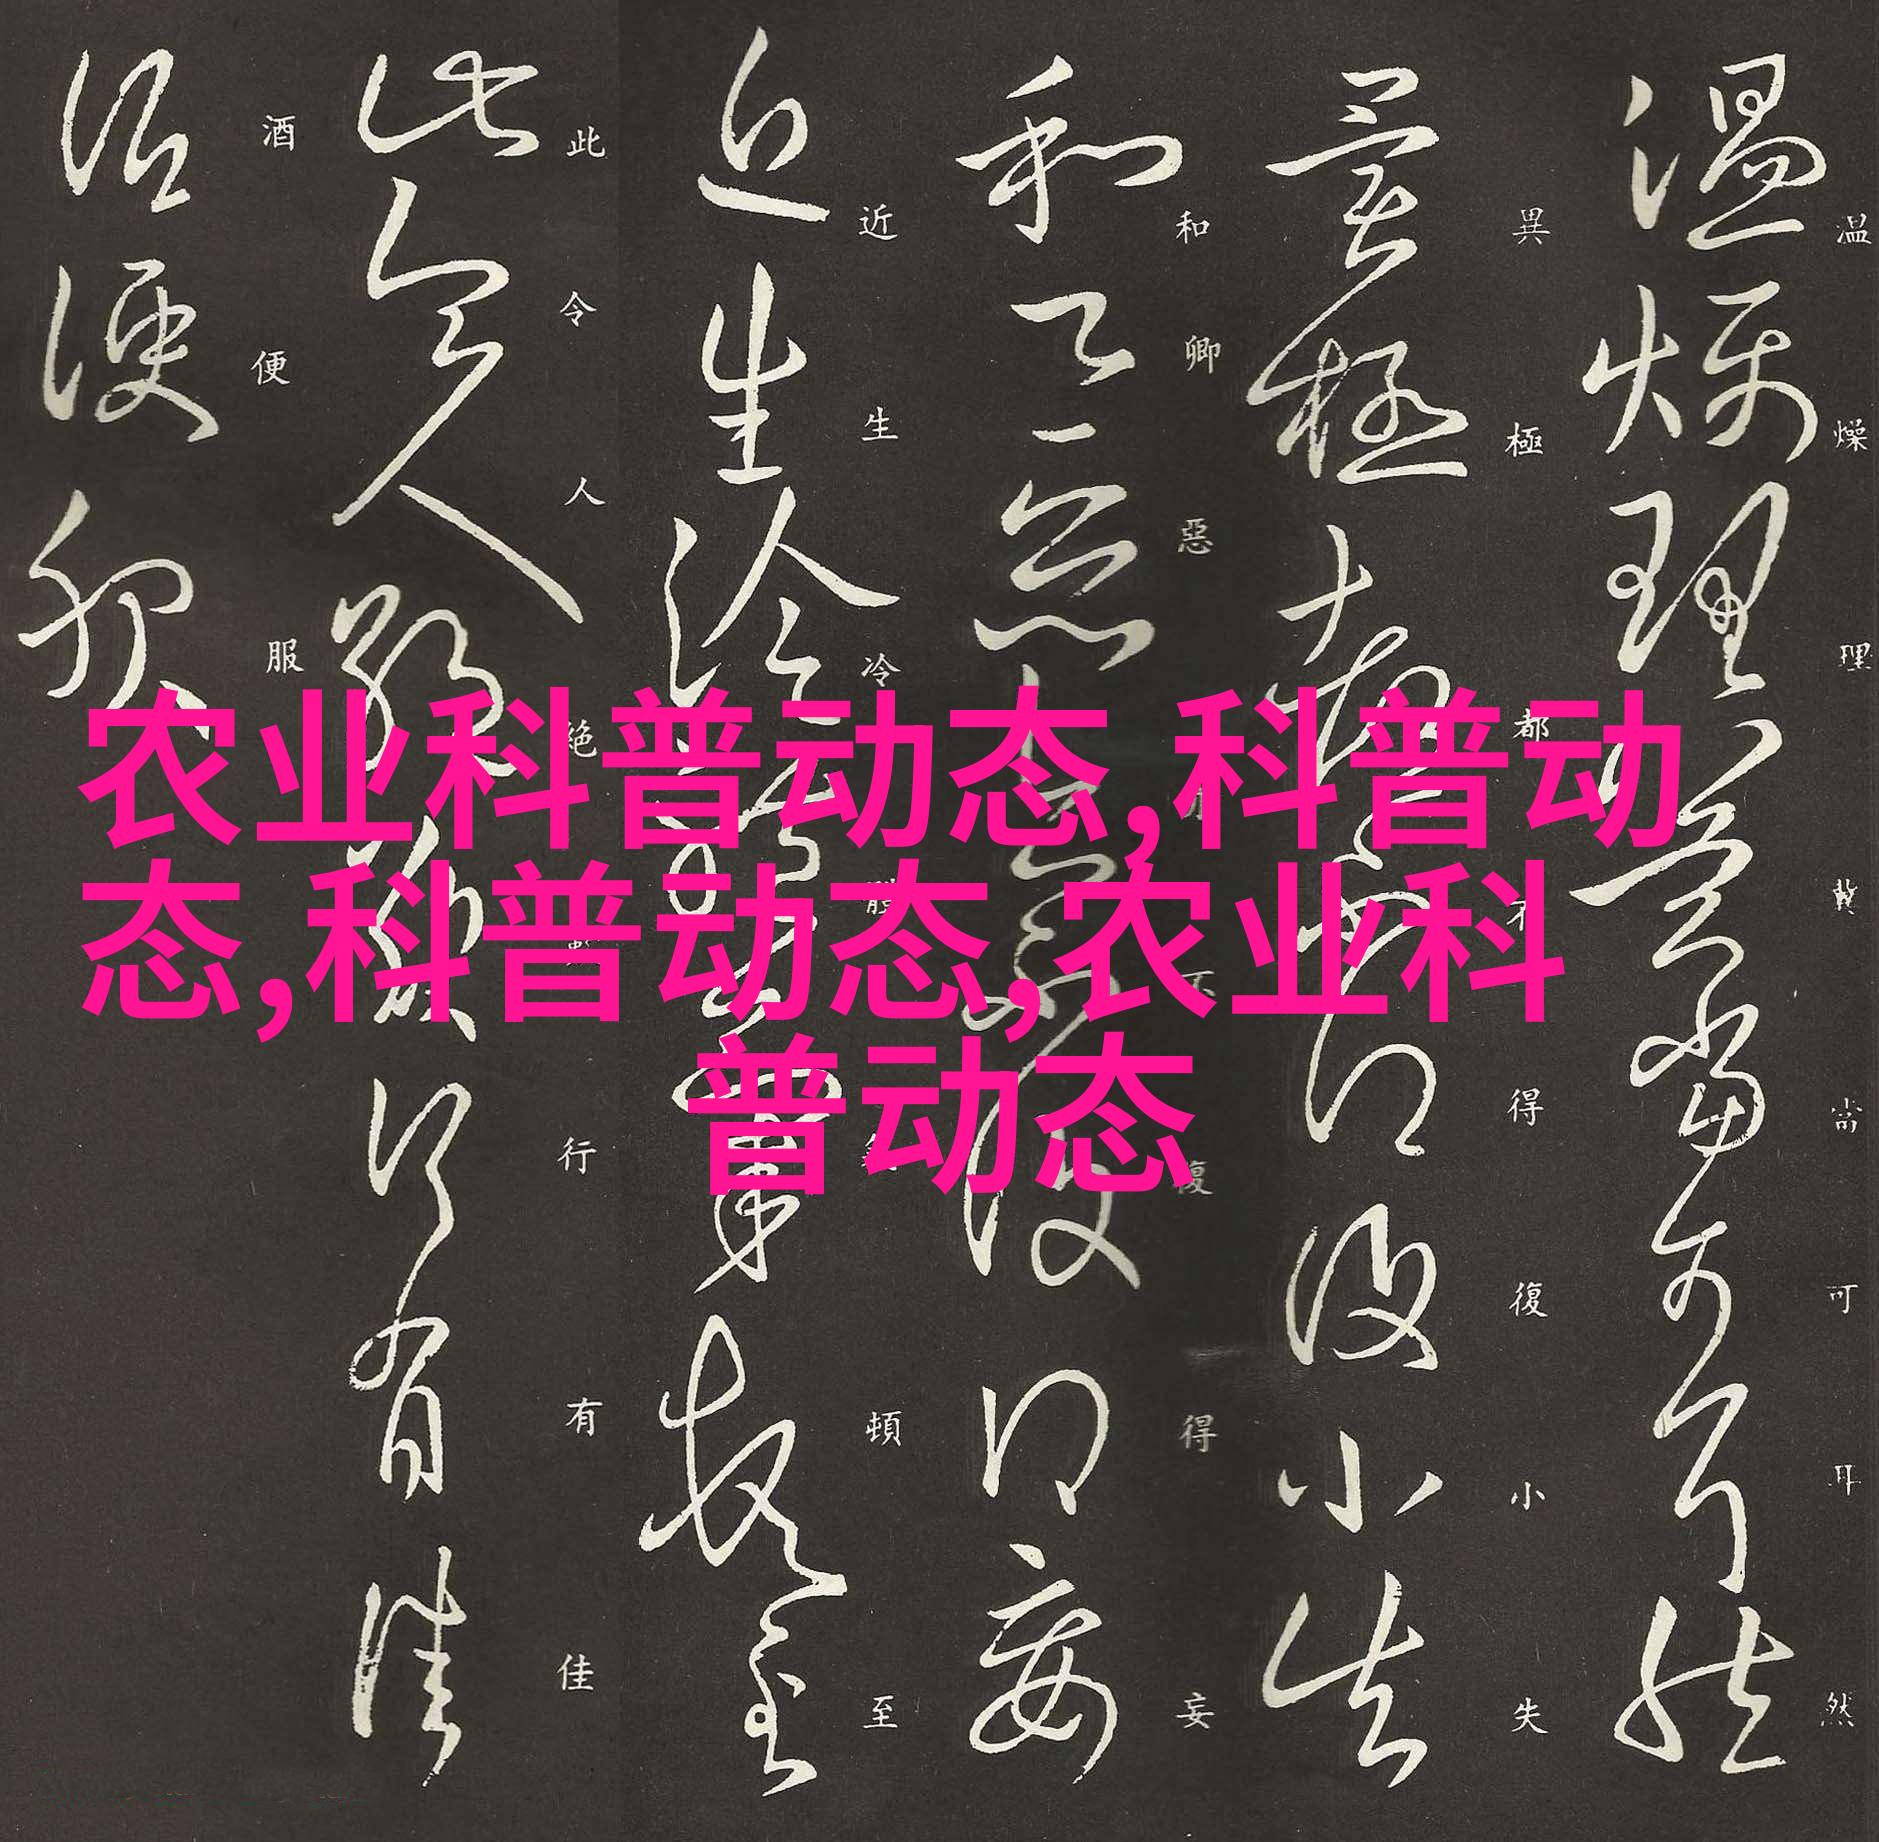 农业科普动态,科普动
态,科普动态,农业科
普动态
温燥理冀當可耳然
異極都不得復小失
和卿惡不復得妄
近生冷體頓至
此令人絶行有佳
酒便服